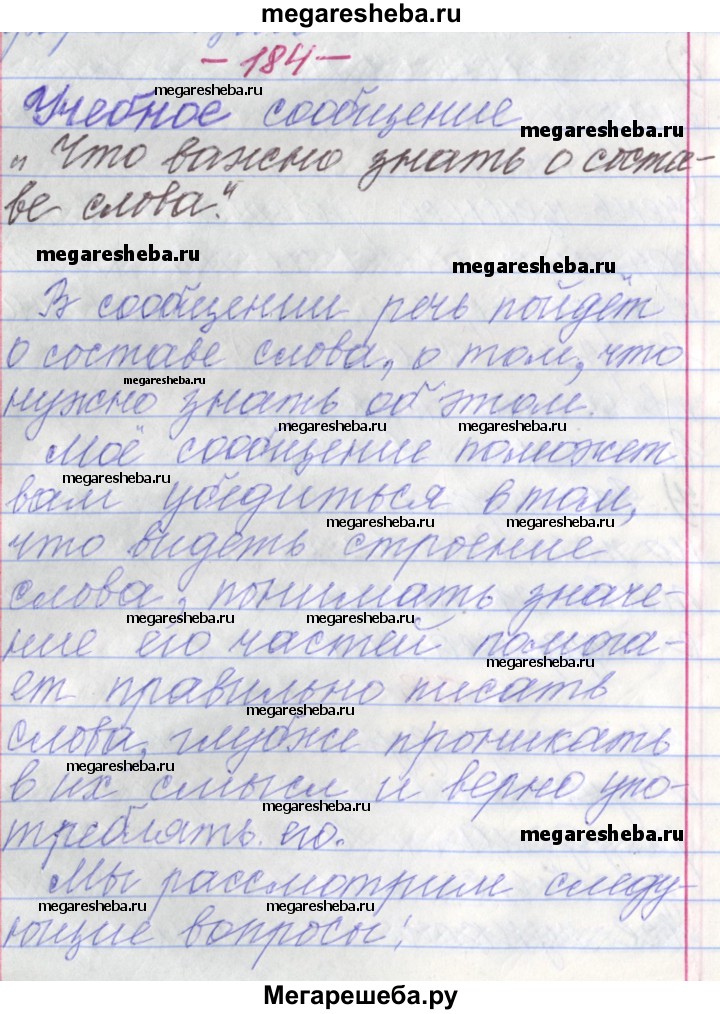 megaresheba.ru
- 184 -
megaresheba.ru
Учебное сообщение
megaresheba.ru
„Что важно знать о соста-
ве слова".
megaresheba.ru
megaresheba.ru
В сообщении речь пойдёт
о составе слова, о том, что
megaresheba.ru
нужно знать об этом.
megaresheba.ru megaresheba.ru
Моё сообщение поможет
megaresheba.ru
вам убедиться в том,
megaresheba.ru megaresheba.ru
что видеть строение
слова, понимать значе-
megaresheba.ru megaresheba.ru
ние его частей помога-
megaresheba.ru
ет правильно писать
megaresheba.ru
слова, глубже проникать
megaresheba.ru
в их смысл и верно упо-
megaresheba.ru
треблять его.
megaresheba.ru
Мы рассмотрим следу-
megaresheba.ru megaresheba.ru
ющие вопросы:
Мегарешеба.ру